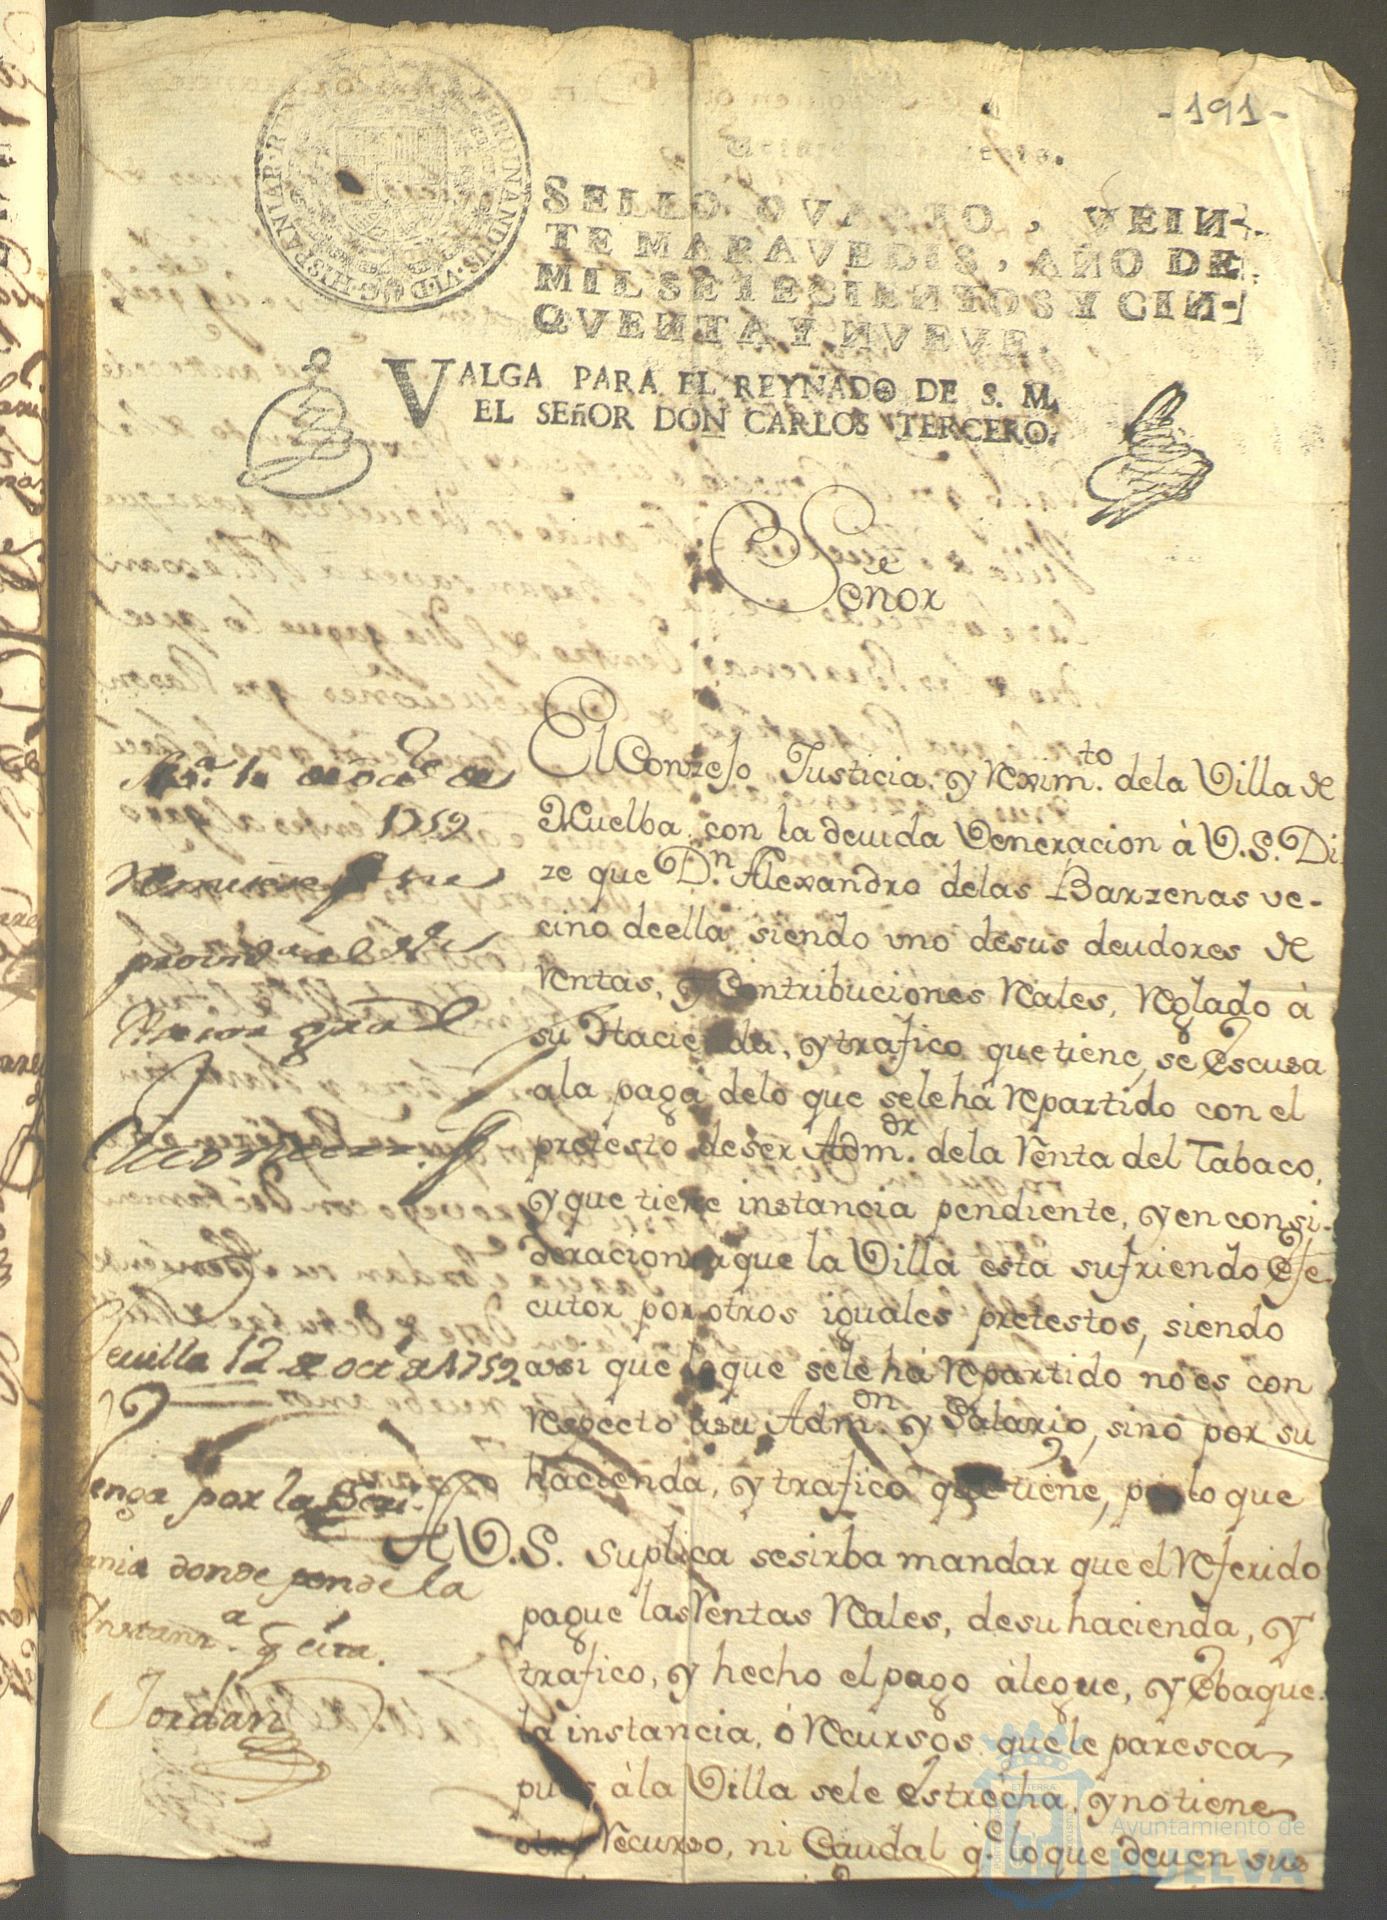 -191-
HISPANIAR. R
FERDINANDUS. VI. D. G.
SELLO QVARTO, VEIN-
TE MARAVEDIS, AÑO DE
MIL SETECIENTOS Y CIN-
QVENTA Y NVEVE.
VALGA PARA EL REYNADO DE S. M.
EL SEñOR DON CARLOS TERCERO.
Señor
El Conzejo Justicia, y Rexim.to dela Villa de
Huelba, con la devida Veneracion à V.S. Di
ze que D.n Alexandro delas Barzenas ve-
cino deella siendo vno desus deudores de
Rentas, y Contribuciones Reales, Reglado à
su Hacienda, y trafico que tiene, se escusa
ala paga delo que sele há Repartido con el
pretesto deser Adm.dr dela Renta del Tabaco,
y que tiene instancia pendiente, y en consi-
deracion à que la Villa está sufriendo Efe
cutor por otros iguales pretestos, siendo
assi que lo que sele há Repartido no es con
Respecto asu Adm.on y Salario, sino por su
hacienda, y trafico que tiene, por lo que
A V.S. Suplica sesirba mandar que el Referido
pague las Rentas Reales, desu hacienda, y
trafico, y hecho el pago álegue, y Ebaque
la instancia, ó Recursos que le paresca
pues àla Villa sele estrecha, y no tiene
otro Recurso, ni Caudal q.e lo que deven sus
1759
Sevilla 12 de oct.e de 1759
venga por la Escri-
bania donde pende la
Instanz.a
Jordán
Ayuntamiento de
HUELVA